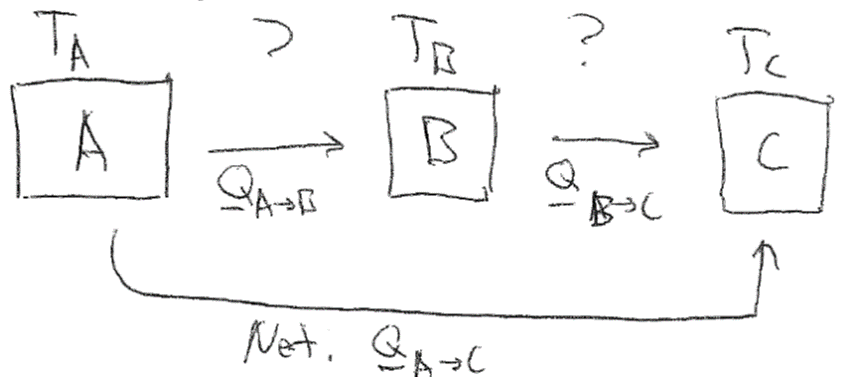 T_A ? T_B ? T_C
A B C
Q_A→B Q_B→C
Net. Q_A→C